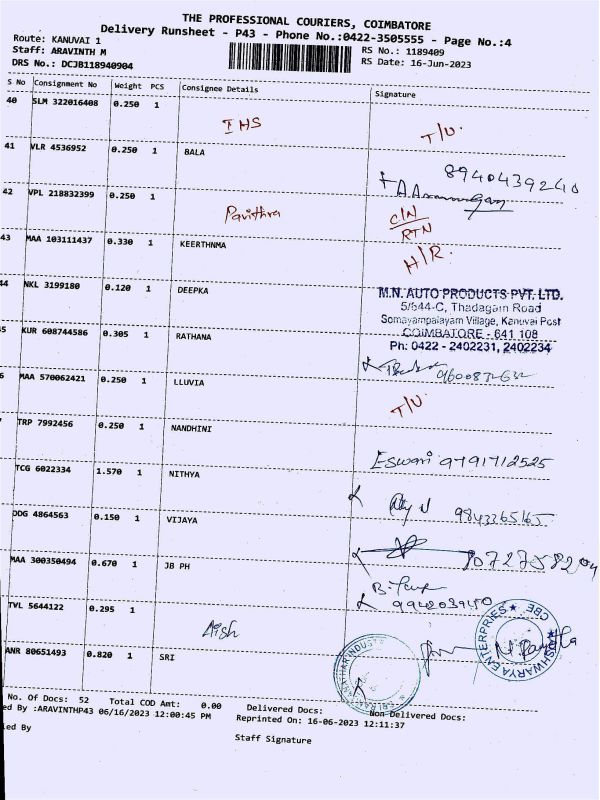 THE PROFESSIONAL COURIERS, COIMBATORE
Delivery Runsheet - P43 - Phone No.:0422-3505555 - Page No.:4
Route: KANUVAI 1
RS No.: 1189409
Staff: ARAVINTH M
RS Date: 16-Jun-2023
DRS No.: DCJB118940904
S No Consignment No Weight PCS Consignee Details Signature
40 SLM 322016408 0.250 1
IHS T/U.
41 VLR 4536952 0.250 1 BALA
8940439240
42 VPL 218832399 0.250 1
Pavithra C/N
RTN
43 MAA 103111437 0.330 1 KEERTHNMA
H/R.
44 NKL 3199180 0.120 1 DEEPKA
M.N. AUTO PRODUCTS PVT. LTD.
5/644-C, Thadagam Road
Somayampalayam Village, Kanuvai Post
COIMBATORE - 641 108
Ph: 0422 - 2402231, 2402234
5 KUR 608744586 0.305 1 RATHANA
6 MAA 570062421 0.250 1 LLUVIA
T/U
TRP 7992456 0.250 1 NANDHINI
Eswari 9791712525
TCG 6022334 1.570 1 NITHYA
9843365165
DDG 4864563 0.150 1 VIJAYA
MAA 300350494 0.670 1 JB PH
TVL 5644122 0.295 1
Aish
AISHWARYA ENTERPRIES ★ CBE ★
ANR 80651493 0.820 1 SRI
No. Of Docs: 52 Total COD Amt: 0.00 Delivered Docs: Non Delivered Docs:
ed By :ARAVINTHP43 06/16/2023 12:00:45 PM Reprinted On: 16-06-2023 12:11:37
led By
Staff Signature